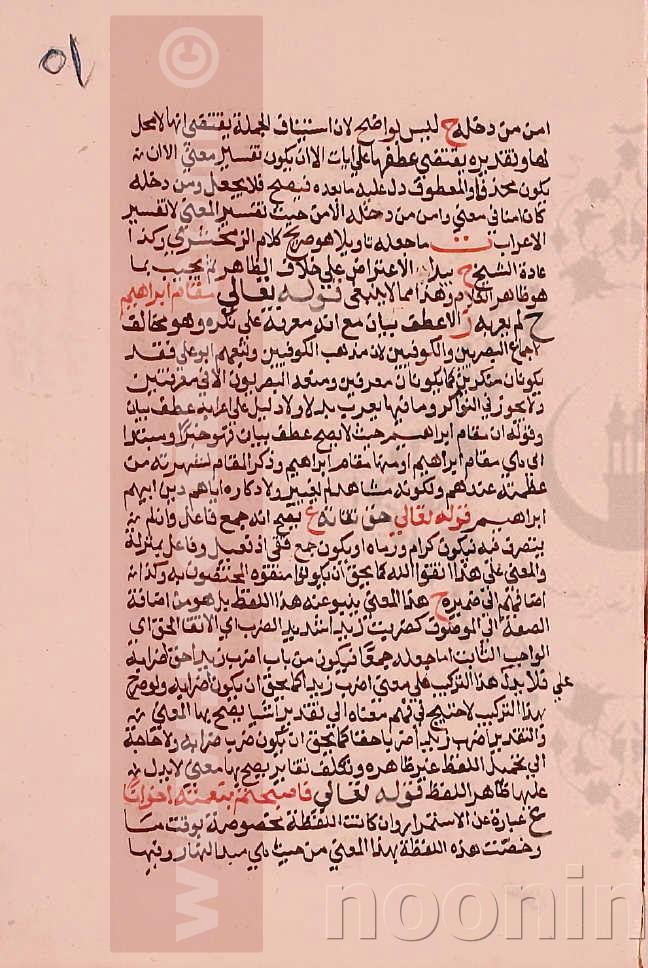 ٥١
امن من دخله ح ليس بواضح لان استيناف الجملة يقتضي انها لا محل
لها وتقديره يقتضي عطفها على ايات الا ان يكون تفسير معنى الا ان
يكون محذوفا والمعطوف دل عليه ما بعده فيصح فلا يجعل ومن دخله
كان امنا في معنى وامن من دخله الا من حيث تفسير المعنى لا تفسير
الاعراب ت ما جعله تاويلا هو صريح كلام الزمخشري وكذا
عادة الشيخ ح يبدا الاعتراض على خلاف الظاهر ثم يجيب بما
هو ظاهر الكلام وهذا مما لا ينبغي قوله تعالى مقام ابراهيم
ح لم يعربه ز الا عطف بيان مع انه معرفة على نكرة وهو مخالف
اجماع البصريين والكوفيين لان مذهب الكوفيين وتبعهم ابو علي فقد
يكونان منكرين كما يكونان معرفين ومنعه البصريون الا في معرفتين
ولا يجوز في النواكر ومابها يعرب بدلا ولا دليل على اعرابه عطف بيان
وقوله ان مقام ابراهيم حيث لا يصح عطف بيان فهو خبر او مبتدا
اي هي مقام ابراهيم او منها مقام ابراهيم وذكر المقام لشهرته من
عظمته عندهم ولكونه مشاهد لم يتغير ولادكاره اياهم دين ابيهم
ابراهيم قوله تعالى حق تقاته ع يصح انه جمع فاعل وان لم
يتصرف فيه فيكون كرام ورماه او يكون جمع تقي اذ فعيل وفاعل بمنزلة
والمعنى على هذا اتقوا الله كما يحق ان يكونوا متقوه المختصون به وكذا
اضافتهم الى ضميره ح هذا المعنى ينبو عنه هذا اللفظ بل هو من اضافة
الصفة الى الموصوف كضربت زيدا شديد الضرب اي الاتقا الحق اي
الواجب الثابت اما جعله جمعا فيكون من باب اضرب زيدا حق ضرابه
على فلا يدل هذا التركيب على معنى اضرب زيدا كما يحق ان يكون ضرابه ولو صرح
بهذا التركيب لاحتيج في فهم معناه الى تقدير اشيا يصح بها المعنى
والتقدير اضرب زيدا ضربا حقا كما يحق ان يكون ضرب ضرابه ولا حاجة
الى تحميل اللفظ غير ظاهره وتكلف تقادير يصح بها معنى لا يدل
عليها ظاهر اللفظ قوله تعالى فاصبحتم بنعمته اخوانا
ع عبارة عن الاستمرار وان كانت اللفظة مخصوصة بوقت ما
وخصت هذه اللفظة بهذا المعنى من حيث هي مبدا النهار وفيها
©
www.
noonin